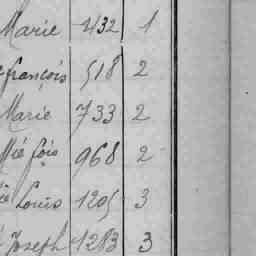 Marie 432 1
françois 518 2
Marie 733 2
Mié fois 968 2
Louis 1205 3
Joseph 1283 3